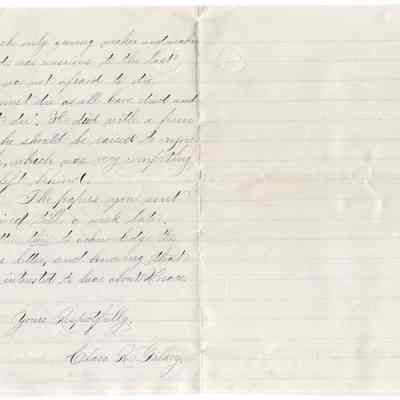 only growing weaker and weaker
was conscious to the last
was not afraid to die
must die as all have died and
to die". He died with a firm
he should be raised to enjoy
which was very comforting
left behind.
The papers you sent
till a week later.
time to acknowledge the
letter, and knowing that
interested to hear about Horace
Yours Respectfully,
Clara R.